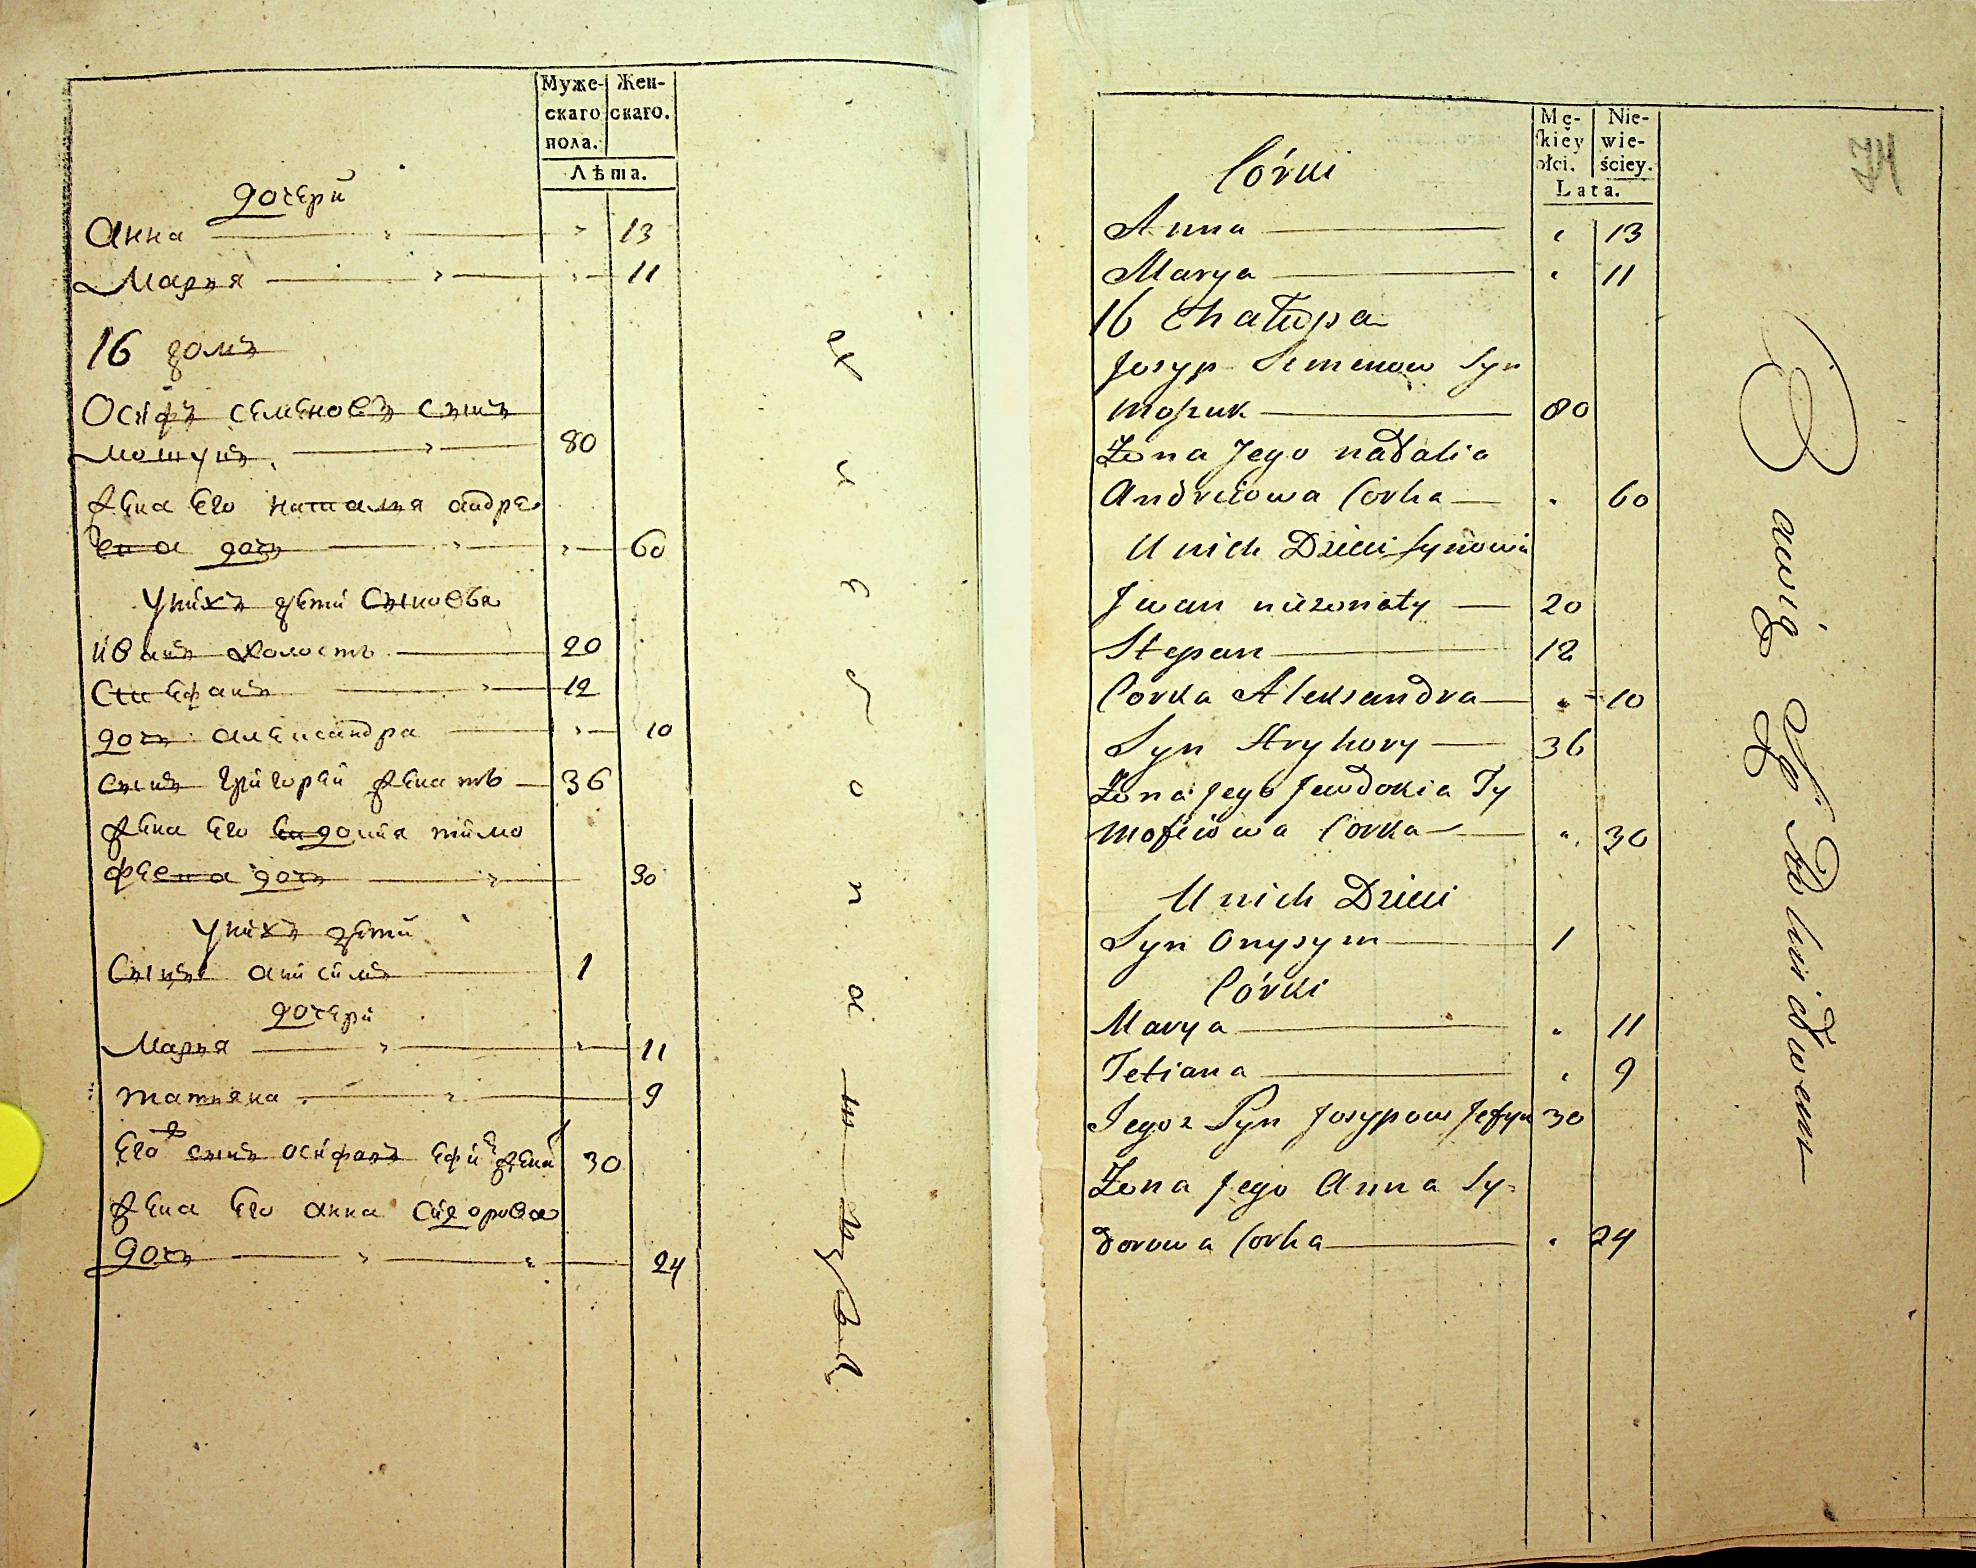 Муже- Жен-
скаго скаго.
пола.
Лѣта.
дочери
Анна 13
Марья 11
16 домъ
Осифъ семеновъ сынъ
80
жена Его наталья андре
ева дочь 60
у нихъ дети Сыновья
иванъ холостъ 20
Стефанъ 12
дочь александра 10
сынъ григорей женатъ 36
жена Его евдокия тимо
феева дочь 30
у нихъ дети
Сынъ анисимъ 1
дочери
Марья 11
татьяна 9
Его сынъ осифовъ 30
жена Его анна сидорова
дочь 24
Mę- Nie-
skiey wie-
płci. ściey.
Lata.
74
Córki
Anna 13
Marya 11
16 Chałupa
Josyp Semenow Syn
80
Żona Jego natalia
Andreiowa Corka 60
U nich Dzieci Synowie
Jwan nieżonaty 20
Stepan 12
Corka Aleksandra 10
Syn Hryhory 36
Żona jego Jewdokia Ty
mofiiowa Corka 30
U nich Dzieci
Syn Onysym 1
Córki
Marya 11
Tetiana 9
Tegoż Syn Josypow Jefym 30
Żona jego Anna Sy-
dorowa Corka 24